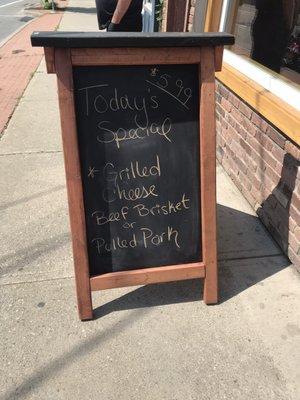 * 5.99
Today's
Special
* Grilled
Cheese
Beef Brisket
or
Pulled Pork